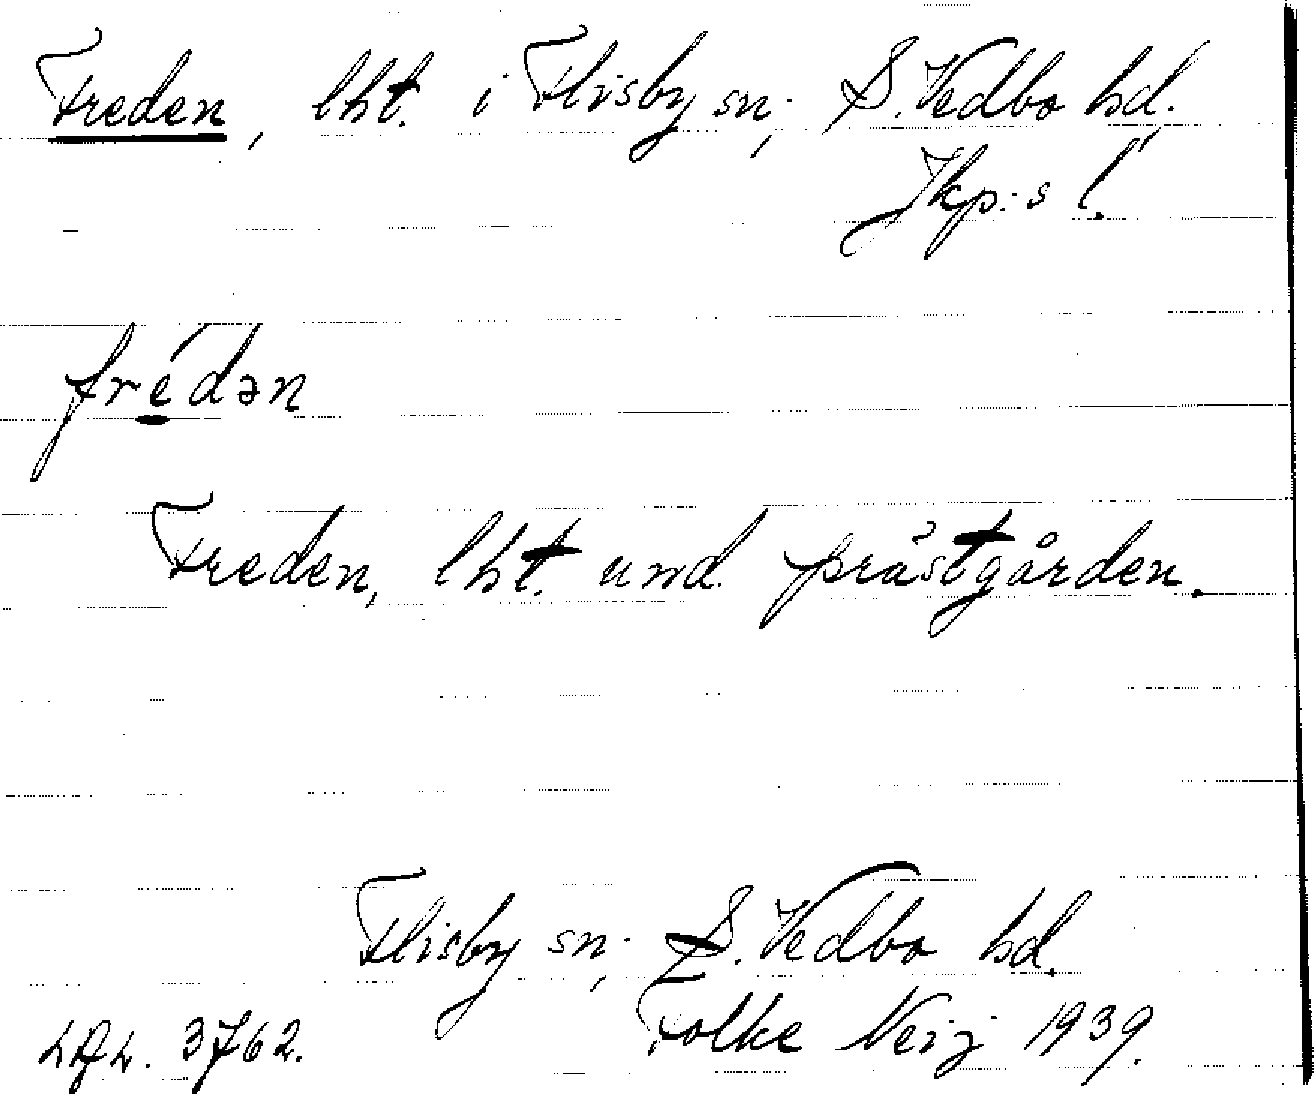 Freden, lht. i Flisby sn., S. Vedbo hd.,
Jkp:s l.
frédən
Freden, lht. und. prästgården.
Flisby sn., S. Vedbo hd.
LAL. 3762. Folke Neij 1939.